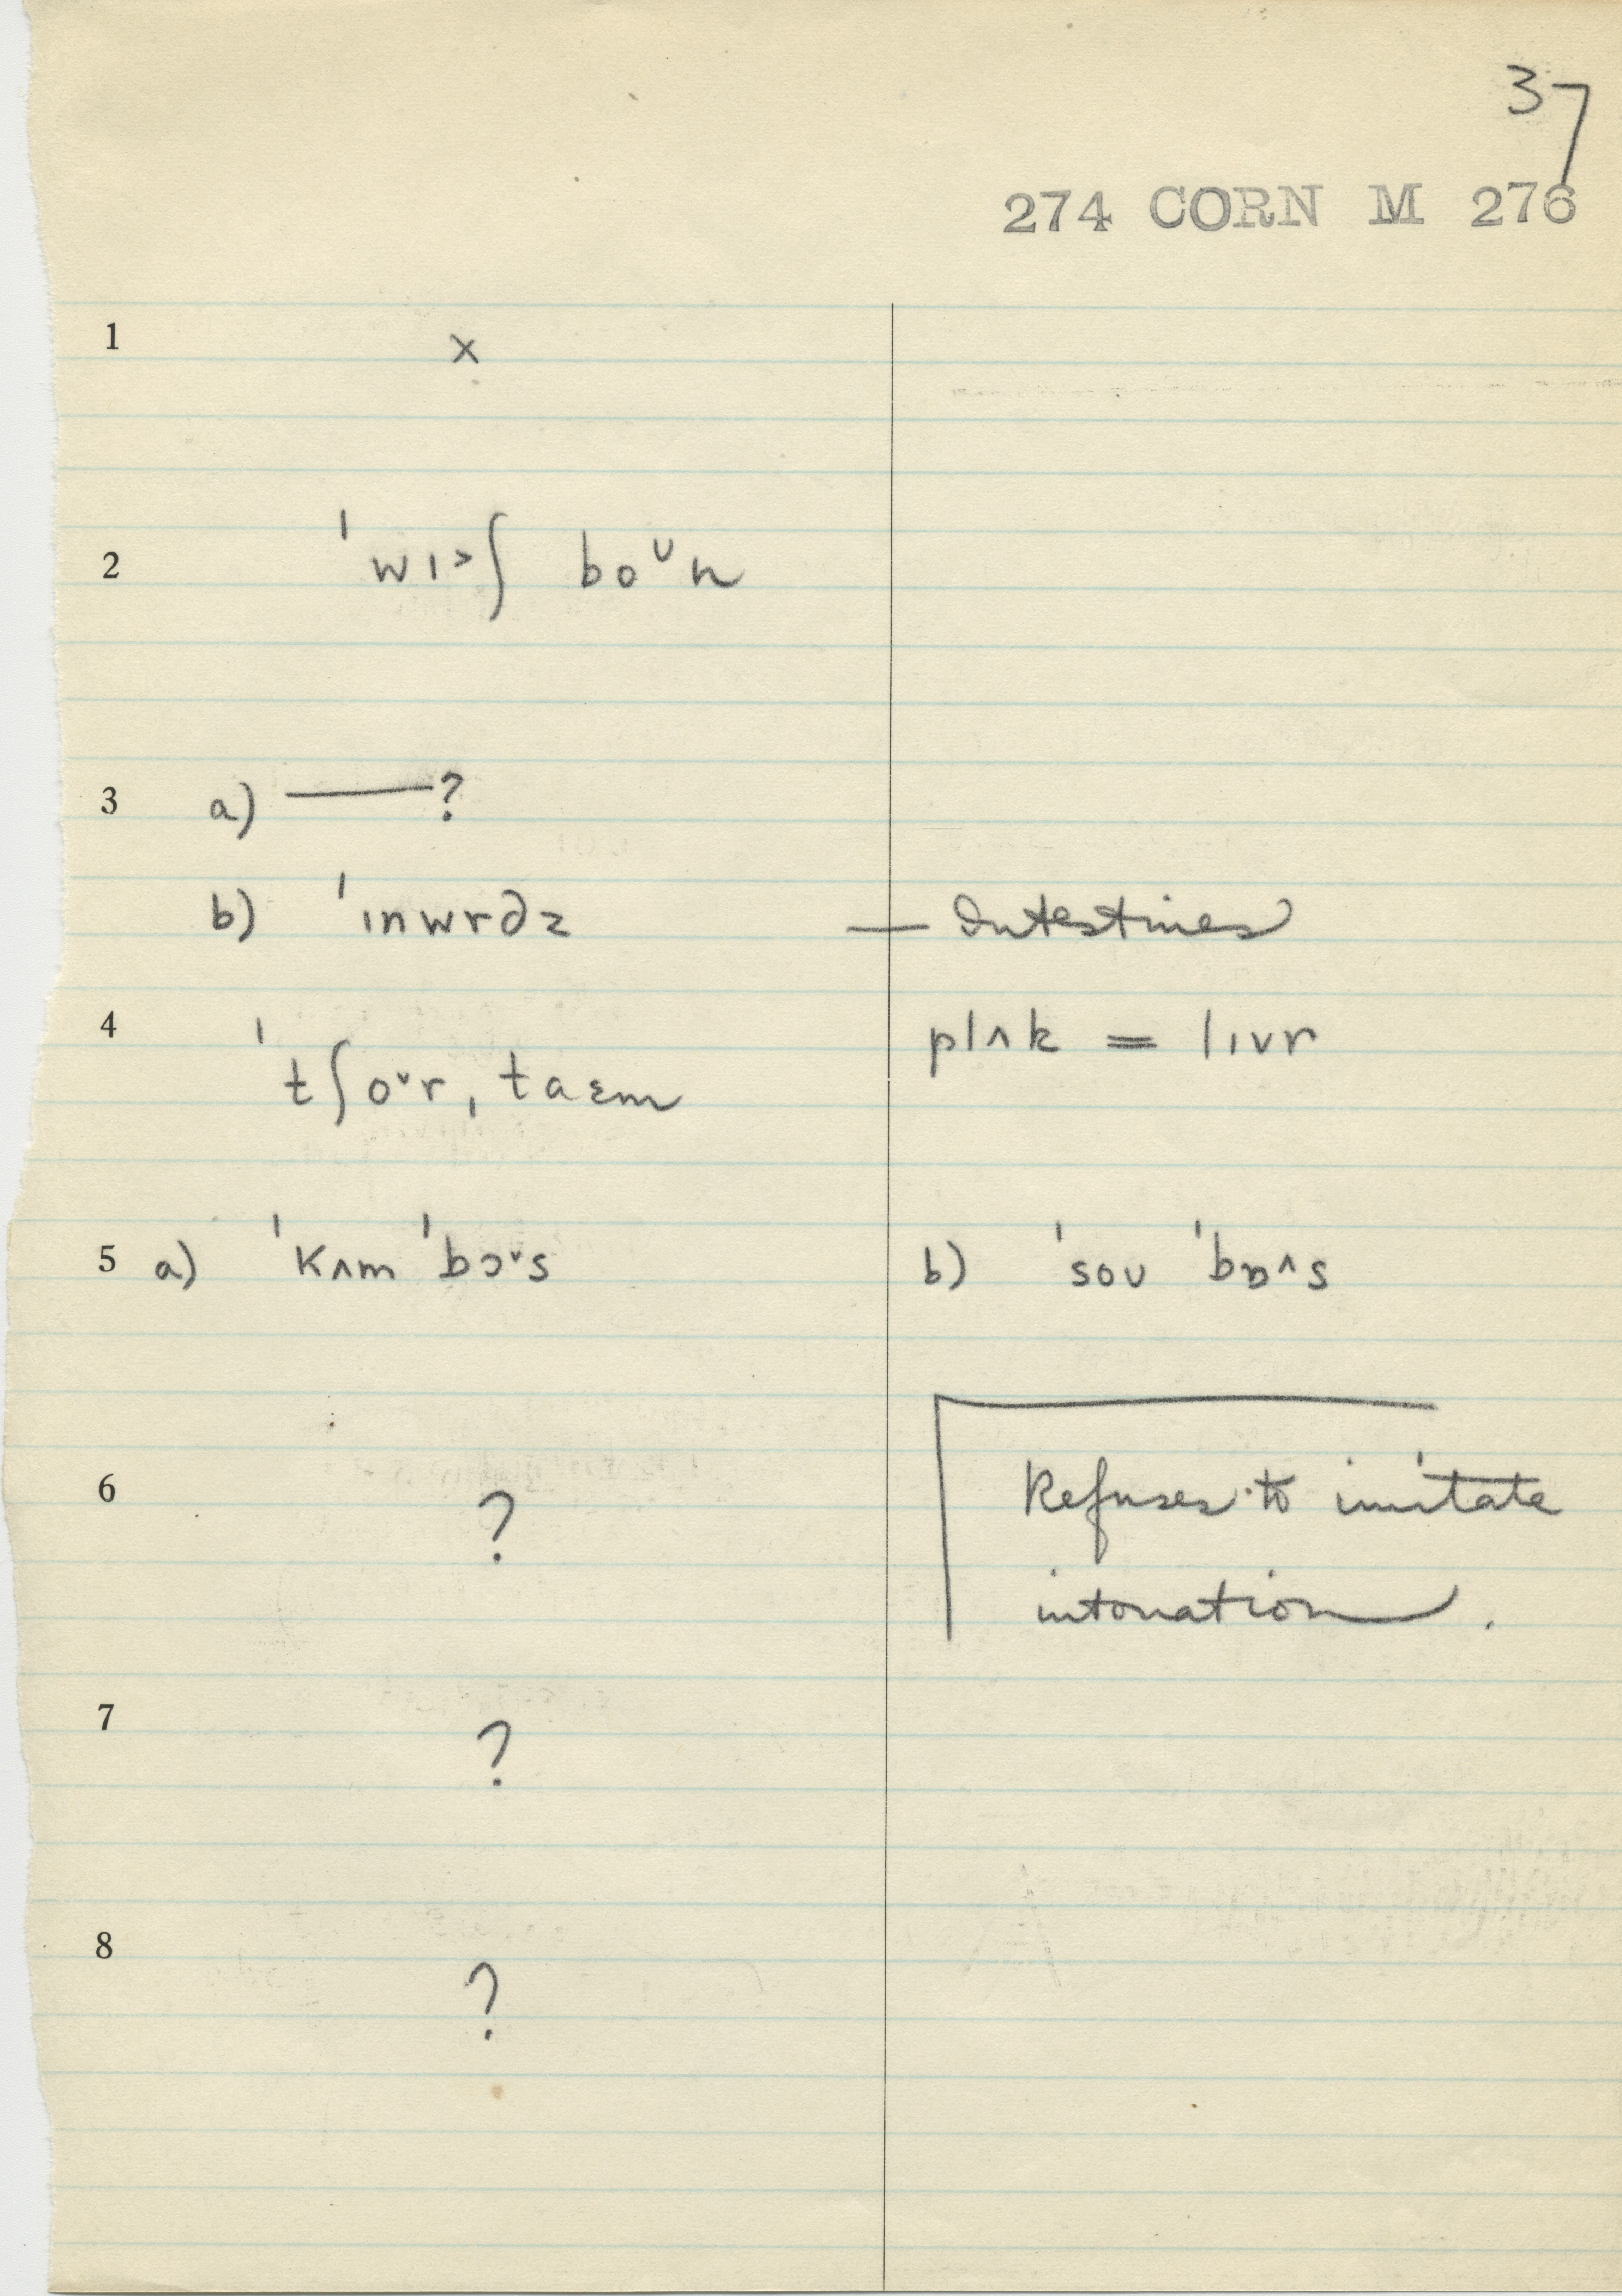 37
274 CORN M 276
1 x
2 ˈwɪ˃ʃ boᵛn
3 a) ——?
b) ˈɪnwrdz — Intestines
4 plʌk = lɪvr
ˈtʃoᵛr ˌtaɛm
5 a) ˈkʌm ˈbɔᵛs b) ˈsoʊ ˈbɒ^s
6 ? Refuses to imitate
intonation.
7 ?
8 ?